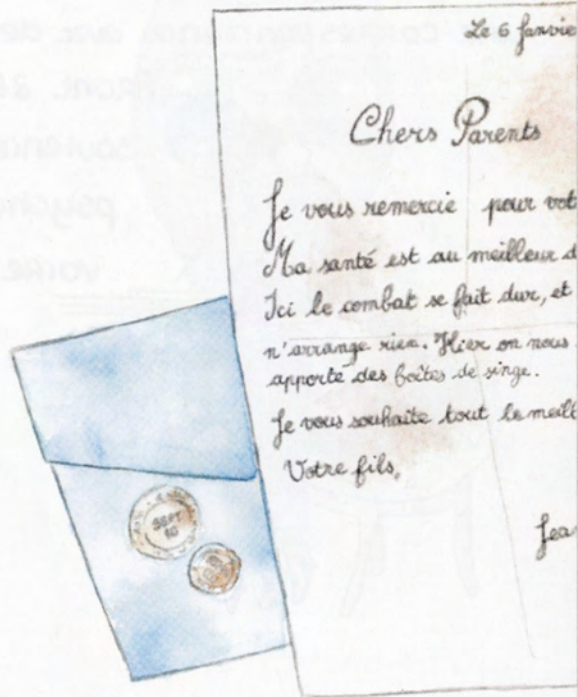 Le 6 Janvie
Chers Parents
Je vous remercie pour vot
Ma santé est au meilleur d
Ici le combat se fait dur, et
n'arrange rien. Hier on nous
apporté des boîtes de singe.
Je vous souhaite tout le meill
Votre fils,
Jea
SEPT